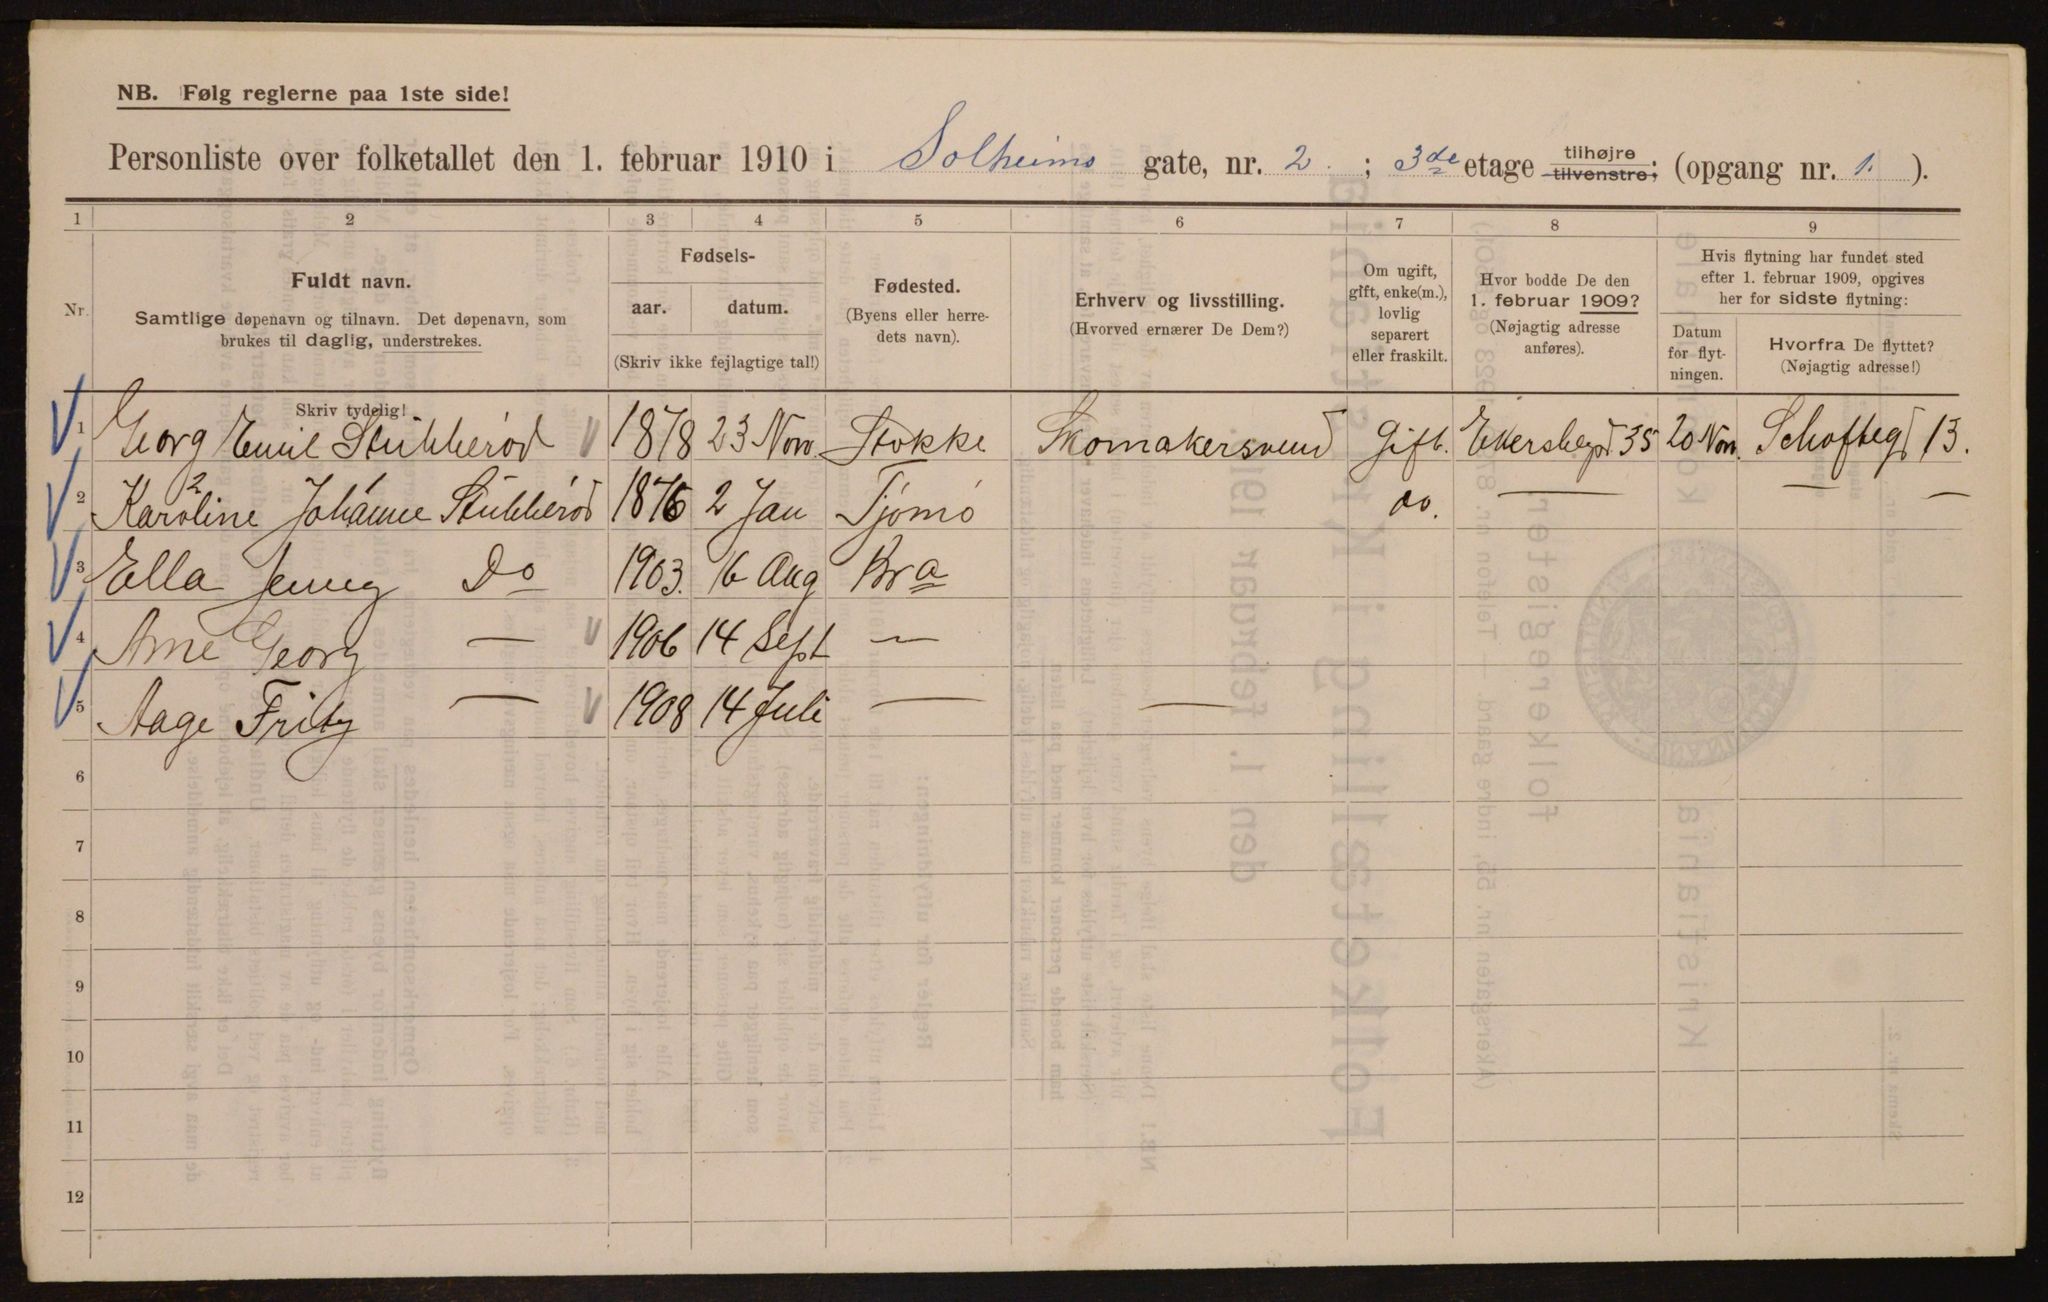 NB. Følg reglerne paa 1ste side!
Personliste over folketallet den 1. februar 1910 i Solheims gate, nr. 2 ; 3de etage tilhøjre tilvenstre; (opgang nr. 1. ).
1 2 3 4 5 6 7 8 9
Nr.
Fuldt navn.
Samtlige døpenavn og tilnavn. Det døpenavn, som
brukes til daglig, understrekes.
Skriv tydelig!
Fødsels-
aar. datum.
(Skriv ikke fejlagtige tal!)
Fødested.
(Byens eller herre-
dets navn).
Erhverv og livsstilling.
(Hvorved ernærer De Dem?)
Om ugift,
gift, enke(m.),
lovlig
separert
eller fraskilt.
Hvor bodde De den
1. februar 1909?
(Nøjagtig adresse
anføres).
Hvis flytning har fundet sted
efter 1. februar 1909, opgives
her for sidste flytning:
Datum
for flyt-
ningen.
Hvorfra De flyttet?
(Nøjagtig adresse!)
1 Georg Emil Stubberød 1878 23 Nov. Stokke Skomakersvend Gift. 35 20 Nov. 13.
2 Karoline Johanne Stubberød 1876 2 Jan Tjømø do. — — —
3 Ella Jenny Do 1903. 16 Aug Kra
4 Arne Georg — 1906 14 Sept —
5 Aage Fritz — 1908 14 Juli — —
6
7
8
9
10
11
12